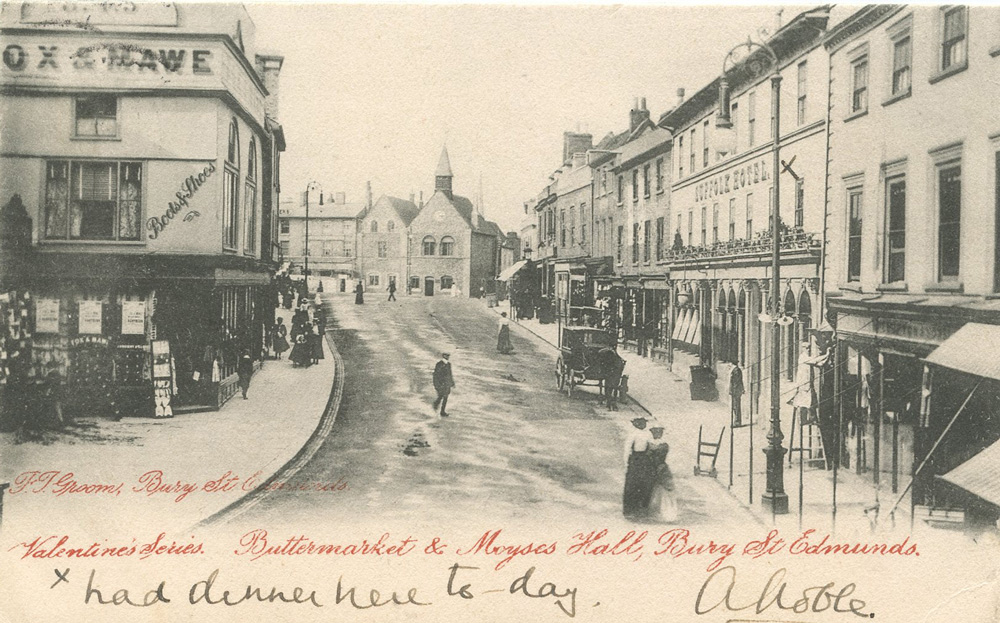 OX & WAWE
Boots & Shoes
SUFFOLK HOTEL.
F.T. Groom, Bury St. Edmunds
Valentine's Series. Buttermarket & Moyses Hall, Bury St Edmunds.
x had dinner here to-day. A Noble.